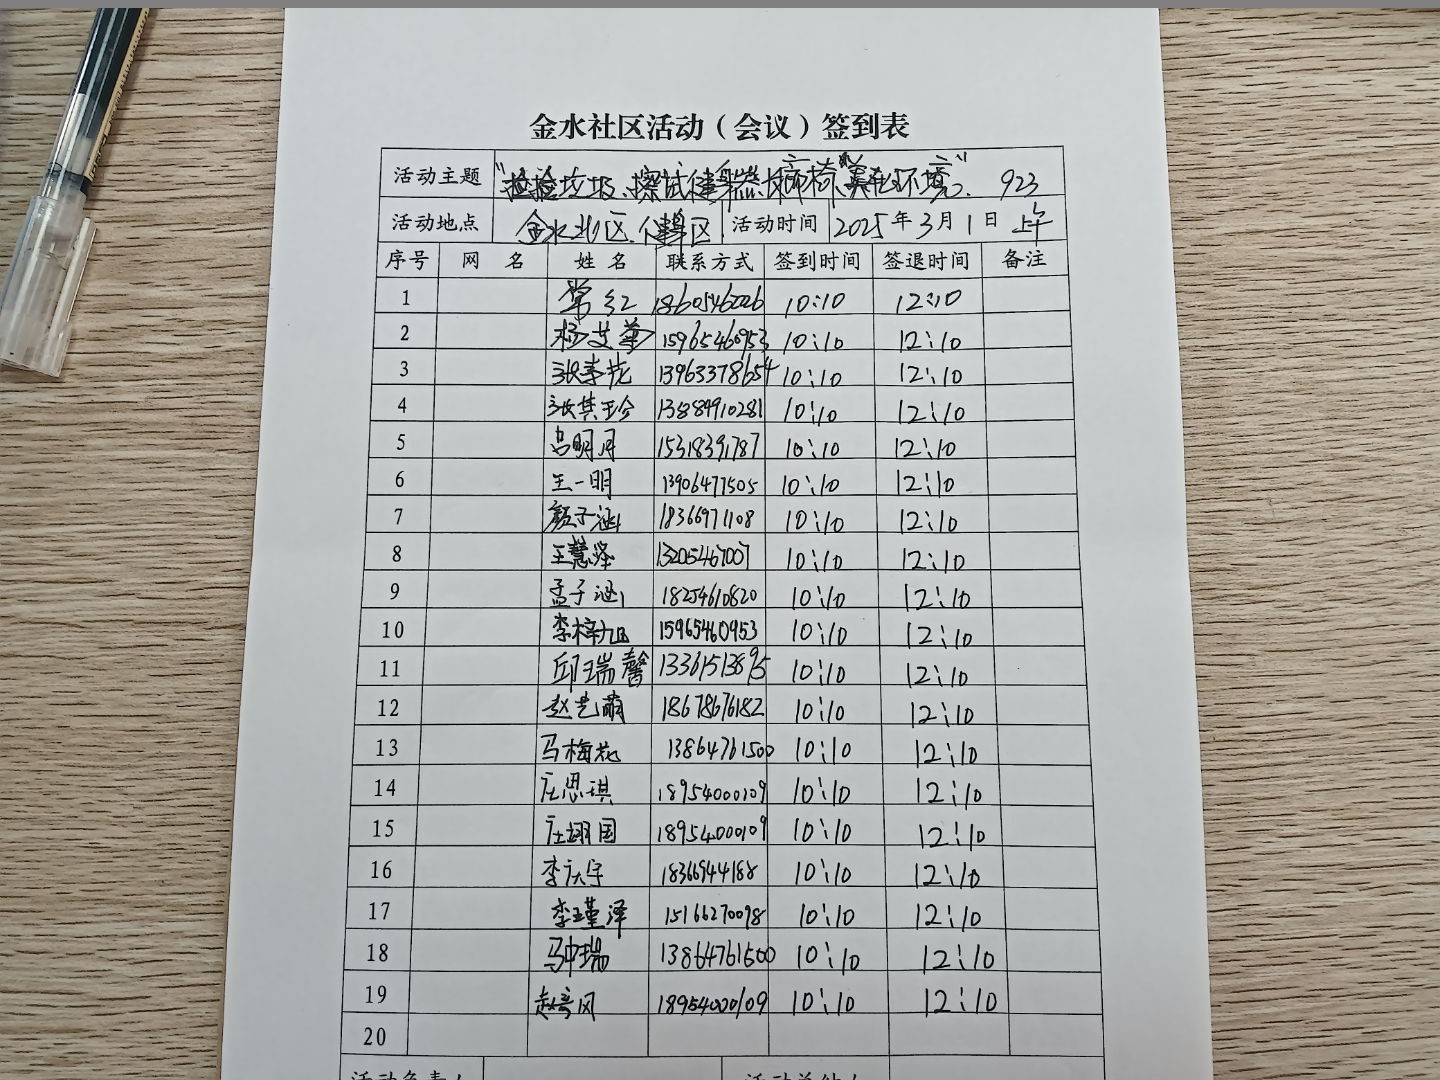 金水社区活动（会议）签到表
活动主题 "捡捡垃圾、擦试健身器材 椅,美化环境". 923
活动地点 金水北区.健身区 活动时间 2025年3月1日 上午
序号 网 名 姓 名 联系方式 签到时间 签退时间 备注
1 常红 18605462026 10:10 12:10
2 杨艾华 15965460953 10:10 12:10
3 张孝花 13963378654 10:10 12:10
4 张其珍 13884910281 10:10 12:10
5 吕明月 15318391787 10:10 12:10
6 王一明 13906477505 10:10 12:10
7 颜子涵 18366971108 10:10 12:10
8 王慧泽 13205467007 10:10 12:10
9 孟子涵 18254610820 10:10 12:10
10 李梓旭 15965460953 10:10 12:10
11 邱瑞馨 13361513895 10:10 12:10
12 赵艺萌 18678676182 10:10 12:10
13 马梅花 13864761500 10:10 12:10
14 庄思琪 18954000109 10:10 12:10
15 庄翊国 18954000109 10:10 12:10
16 李庆宇 18366944188 10:10 12:10
17 李瑾泽 15166270098 10:10 12:10
18 马中瑞 13864761500 10:10 12:10
19 赵奇风 18954000109 10:10 12:10
20